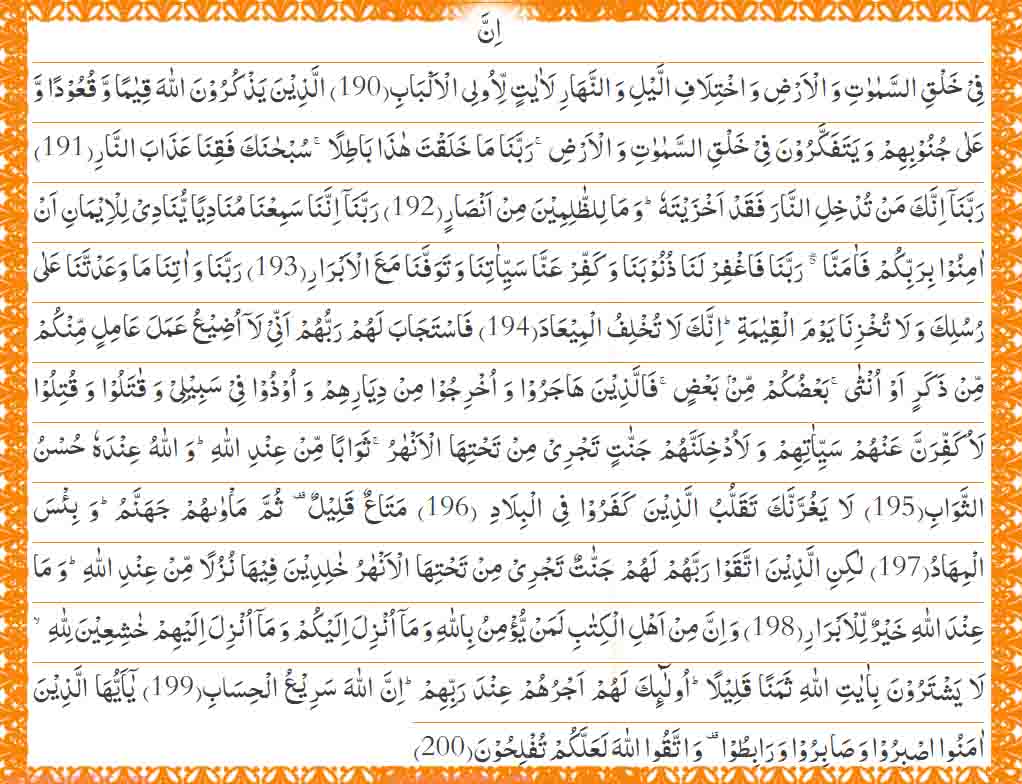 اِنَّ
فِیْ خَلْقِ السَّمٰوٰتِ وَ الْاَرْضِ وَ اخْتِلَافِ الَّیْلِ وَ النَّهَارِ لَاٰیٰتٍ لِّاُولِی الْاَلْبَابِ(190) الَّذِیْنَ یَذْكُرُوْنَ اللّٰهَ قِیٰمًا وَّ قُعُوْدًا وَّ
عَلٰى جُنُوْبِهِمْ وَ یَتَفَكَّرُوْنَ فِیْ خَلْقِ السَّمٰوٰتِ وَ الْاَرْضِ ۚ رَبَّنَا مَا خَلَقْتَ هٰذَا بَاطِلًا ۚ سُبْحٰنَكَ فَقِنَا عَذَابَ النَّارِ(191)
رَبَّنَاۤ اِنَّكَ مَنْ تُدْخِلِ النَّارَ فَقَدْ اَخْزَیْتَهٗ ؕ وَ مَا لِلظّٰلِمِیْنَ مِنْ اَنْصَارٍ(192) رَبَّنَاۤ اِنَّنَا سَمِعْنَا مُنَادِیًا یُّنَادِیْ لِلْاِیْمَانِ اَنْ
اٰمِنُوْا بِرَبِّكُمْ فَاٰمَنَّا ۖۗ رَبَّنَا فَاغْفِرْ لَنَا ذُنُوْبَنَا وَ كَفِّرْ عَنَّا سَیِّاٰتِنَا وَ تَوَفَّنَا مَعَ الْاَبْرَارِ(193) رَبَّنَا وَ اٰتِنَا مَا وَعَدْتَّنَا عَلٰى
رُسُلِكَ وَ لَا تُخْزِنَا یَوْمَ الْقِیٰمَةِ ؕ اِنَّكَ لَا تُخْلِفُ الْمِیْعَادَ(194) فَاسْتَجَابَ لَهُمْ رَبُّهُمْ اَنِّیْ لَاۤ اُضِیْعُ عَمَلَ عَامِلٍ مِّنْكُمْ
مِّنْ ذَكَرٍ اَوْ اُنْثٰى ۚ بَعْضُكُمْ مِّنْۢ بَعْضٍ ۚ فَالَّذِیْنَ هَاجَرُوْا وَ اُخْرِجُوْا مِنْ دِیَارِهِمْ وَ اُوْذُوْا فِیْ سَبِیْلِیْ وَ قٰتَلُوْا وَ قُتِلُوْا
لَاُكَفِّرَنَّ عَنْهُمْ سَیِّاٰتِهِمْ وَ لَاُدْخِلَنَّهُمْ جَنّٰتٍ تَجْرِیْ مِنْ تَحْتِهَا الْاَنْهٰرُ ۚ ثَوَابًا مِّنْ عِنْدِ اللّٰهِ ؕ وَ اللّٰهُ عِنْدَهٗ حُسْنُ
الثَّوَابِ(195) لَا یَغُرَّنَّكَ تَقَلُّبُ الَّذِیْنَ كَفَرُوْا فِی الْبِلَادِ (196) مَتَاعٌ قَلِیْلٌ ۫ ثُمَّ مَاْوٰىهُمْ جَهَنَّمُ ؕ وَ بِئْسَ
الْمِهَادُ(197) لٰكِنِ الَّذِیْنَ اتَّقَوْا رَبَّهُمْ لَهُمْ جَنّٰتٌ تَجْرِیْ مِنْ تَحْتِهَا الْاَنْهٰرُ خٰلِدِیْنَ فِیْهَا نُزُلًا مِّنْ عِنْدِ اللّٰهِ ؕ وَ مَا
عِنْدَ اللّٰهِ خَیْرٌ لِّلْاَبْرَارِ(198) وَ اِنَّ مِنْ اَهْلِ الْكِتٰبِ لَمَنْ یُّؤْمِنُ بِاللّٰهِ وَ مَاۤ اُنْزِلَ اِلَیْكُمْ وَ مَاۤ اُنْزِلَ اِلَیْهِمْ خٰشِعِیْنَ لِلّٰهِ ۙ
لَا یَشْتَرُوْنَ بِاٰیٰتِ اللّٰهِ ثَمَنًا قَلِیْلًا ؕ اُولٰٓىٕكَ لَهُمْ اَجْرُهُمْ عِنْدَ رَبِّهِمْ ؕ اِنَّ اللّٰهَ سَرِیْعُ الْحِسَابِ(199) یٰۤاَیُّهَا الَّذِیْنَ
اٰمَنُوا اصْبِرُوْا وَ صَابِرُوْا وَ رَابِطُوْا ۫ وَ اتَّقُوا اللّٰهَ لَعَلَّكُمْ تُفْلِحُوْنَ(200)